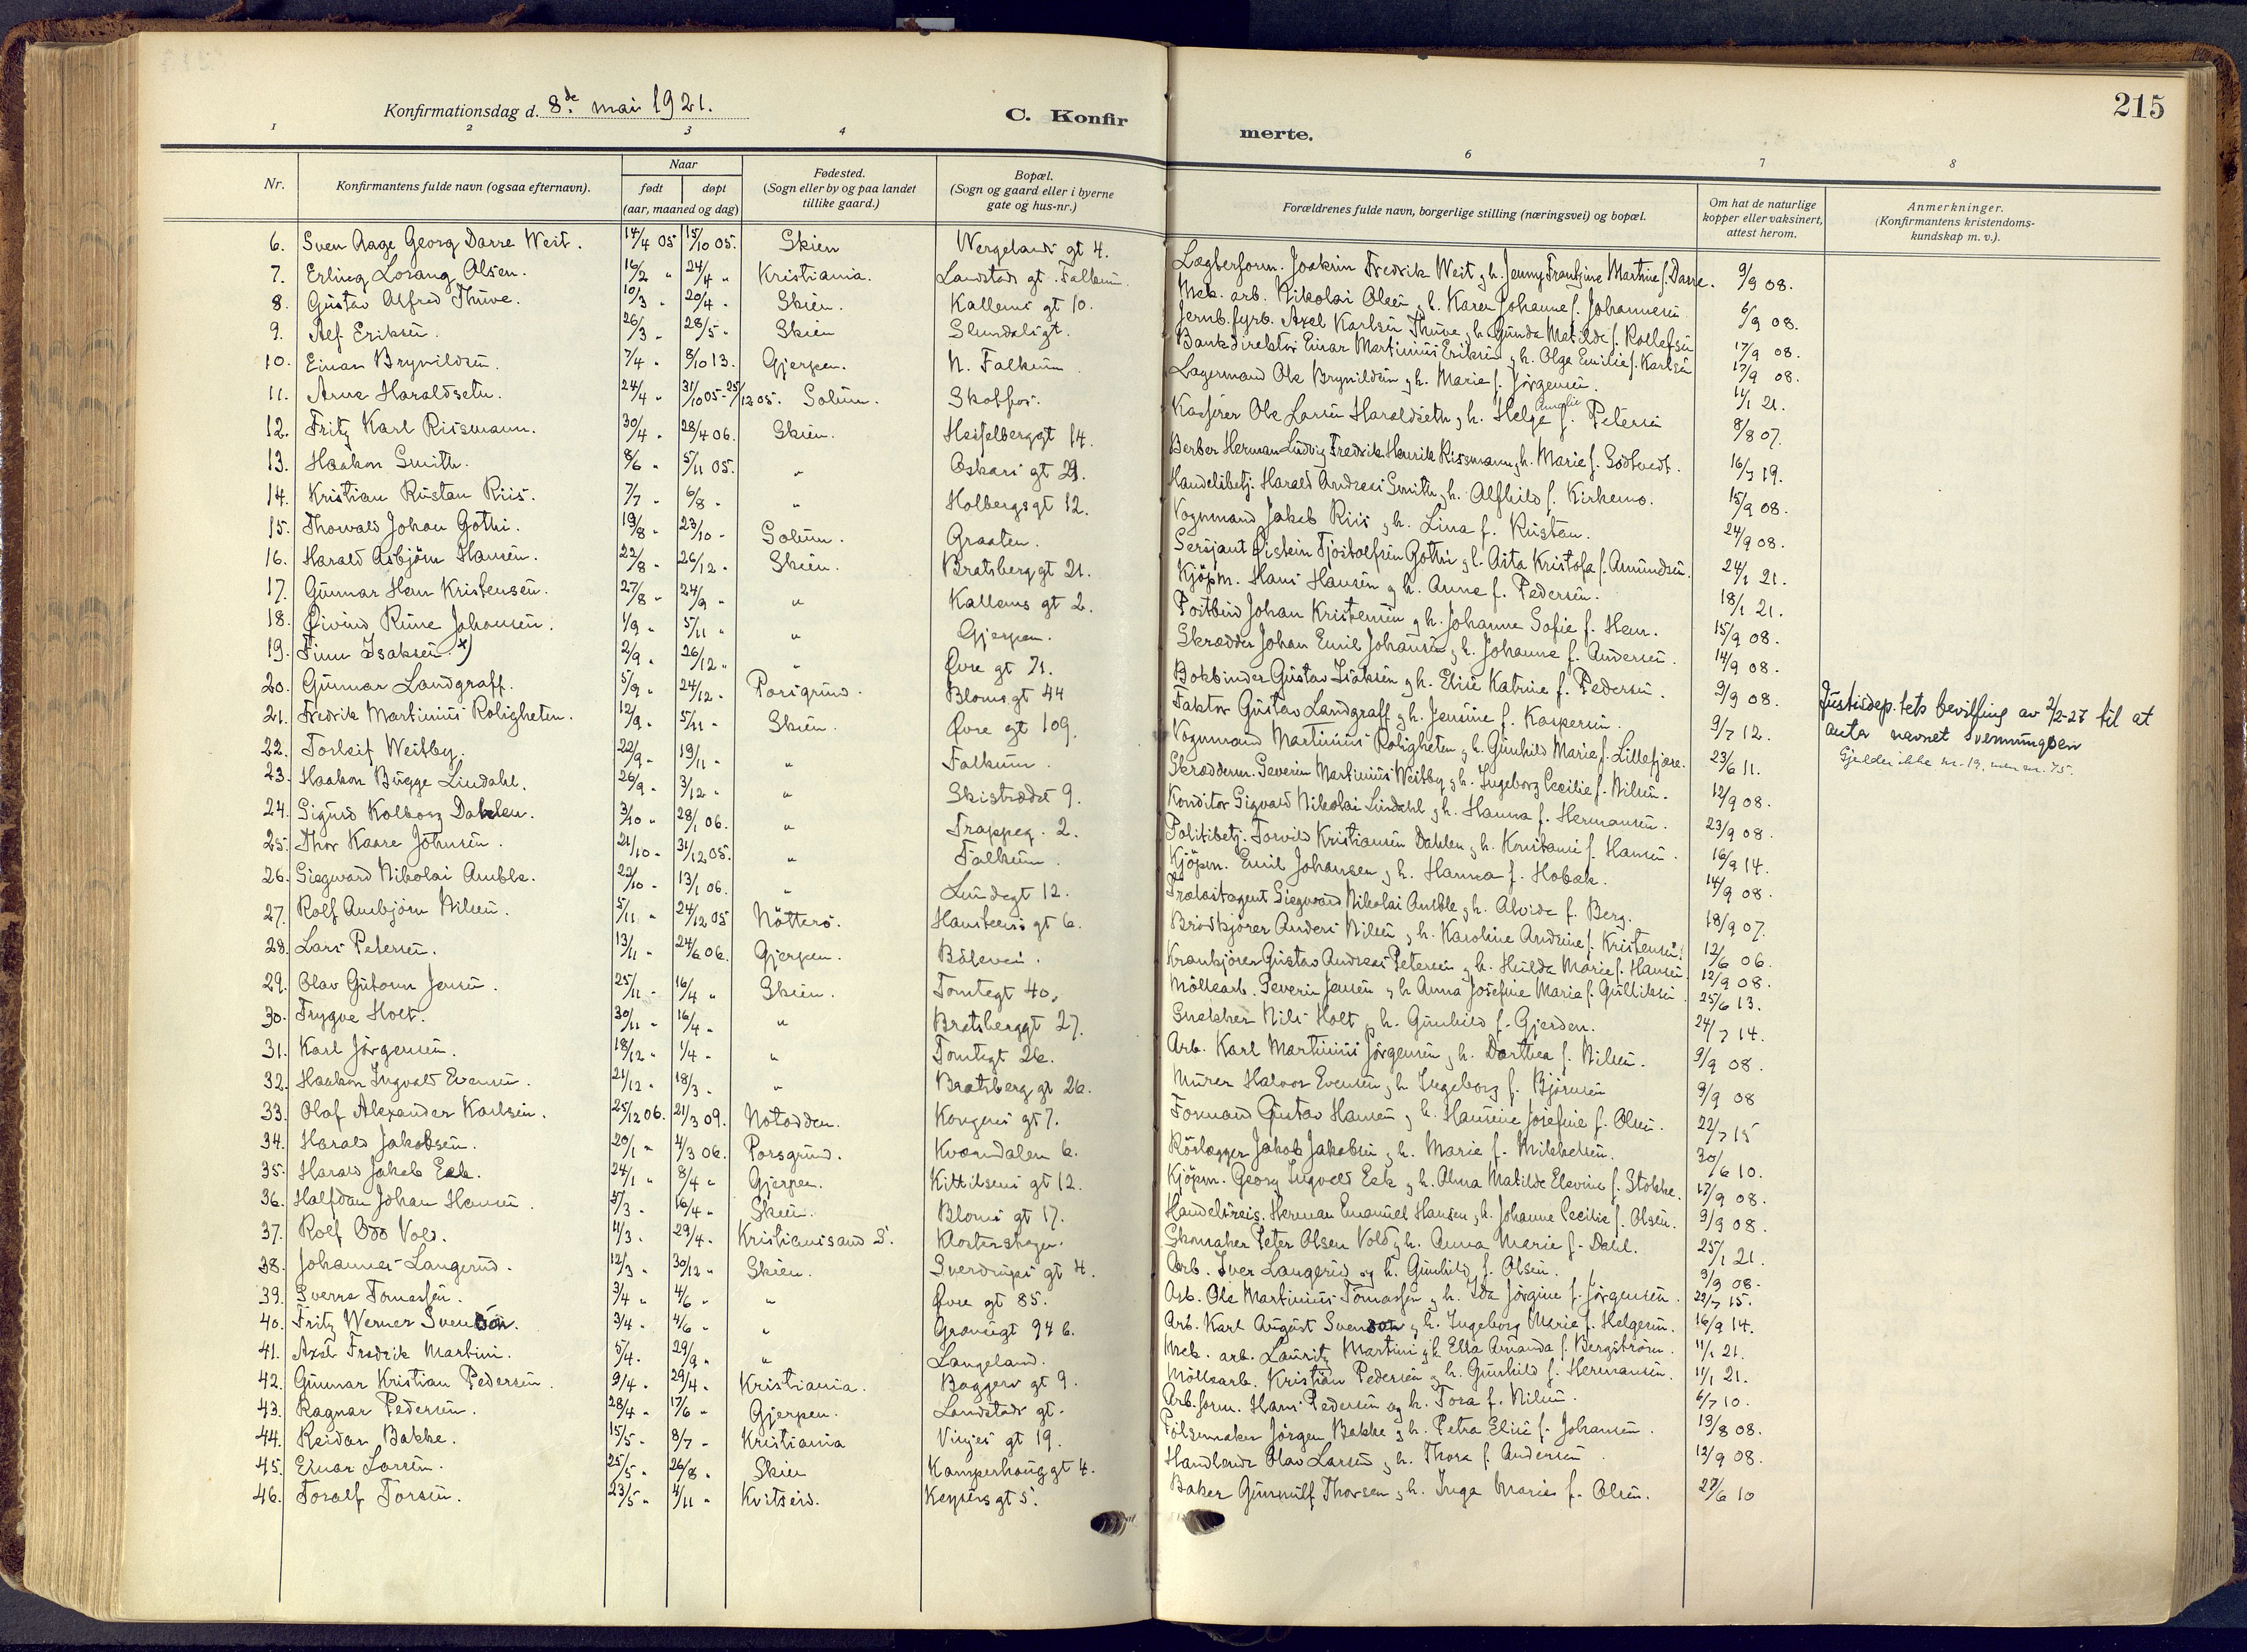 215
Konfirmationsdag d. 8.de mai 1921.
C. Konfirmerte.
1 2 3 4 6 7 8
Nr. Konfirmantens fulde navn (ogsaa efternavn). Naar født døpt (aar, maaned og dag) Fødested. (Sogn eller by og paa landet tillike gaard.) Bopæl. (Sogn og gaard eller i byerne gate og hus-nr.) Forældrenes fulde navn, borgerlige stilling (næringsvei) og bopæl. Om hat de naturlige kopper eller vaksinert, attest herom. Anmerkninger. (Konfirmantens kristendoms-kundskap m. v.).
6. Sven Aage Georg Darre Weit. 14/4 05 15/10 05. Skien Wergelands gt 4. Joakim Fredrik Weit og h. Jenny Frantzine Martine f. Darre. 9/9 08.
7. Erling Lorang Olsen. 16/2 " 24/4 " Kristiania. Landstads gt. Falkum. Mek. arb. Nikolai Olsen og h. Karen Johanne f. Johannesen 6/9 08.
8. Gustav Alfred Thuve. 10/3 " 20/4 " Skien. Kallems gt 10. Jernb. fyrb. Axel Karlsen Thuve og h. Gunda Matilde f. Rollefsen 17/9 08.
9. Alf Eriksen. 26/3 " 28/5 " Skien Slemdalsgt. Bankdirektør Einar Martinius Eriksen og h. Olga Emilie f. Karlsen 17/9 08.
10. Einar Brynildsen. 7/4 " 8/10 13. Gjerpen. N. Falkum Lagermand Ole Brynildsen og h. Marie f. Jørgensen. 11/1 21.
11. Arne Haraldseth. 24/4 " 31/10 05 - 25/12 05. Solum. Skotfos. Kasserer Ole Larsen Haraldseth og h. Helga Amalie f. Petersen 8/8 07.
12. Fritz Karl Rissmann. 30/4 " 28/4 06. Skien. Hesselberggt 14. Barber Herman Ludvig Fredrik Henrik Rissmann og h. Marie f. Godtvedt. 16/7 19.
13. Haakon Smith. 8/6 " 5/11 05. " Oskars gt 29. Handelsbetj. Harald Andreas Smith og h. Alfhild f. Kirkemo. 15/9 08.
14. Kristian Rustan Riis. 7/7 " 6/8 " " Holbergs gt 12. Vognmand Jakob Riis og h. Lina f. Rustan. 24/9 08.
15. Thorvald Johan Gothi. 19/8 " 23/10 " Solum. Graaten. Sersjant Øistein Tjøstolfsen Gothi og h. Asta Kristofa f. Amundsen. 24/1 21.
16. Harald Asbjörn Hansen. 22/8 " 26/12 " Skien. Bratsberg gt 21. Kjöpm. Hans Hansen og h. Anne f. Pedersen. 18/1 21.
17. Gunnar Hem Kristensen. 27/8 " 24/9 " " Kallems gt 2. Postbud Johan Kristensen og h. Johanne Sofie f. Hem. 15/9 08.
18. Øivind Rune Johansen. 1/9 " 5/11 " " Gjerpen. Skrædder Johan Emil Johansen og h. Johanne f. Andersen. 14/9 08.
19. Finn Isaksen. x) 2/9 " 26/12 " " Øvre gt 71. Bokbinder Gustav Isaksen og h. Elise Katrine f. Pedersen. 9/9 08. Justisdep.tets bevilling av 2/2-27 til at
anta navnet Svenningsen
Gjelder ikke nr. 19, men nr. 75.
20. Gunnar Landgraff. 5/9 " 24/12 " Porsgrund. Bloms gt 44 Faktor Gustav Landgraff og h. Jensine f. Kaspersen. 9/7 12.
21. Fredrik Martinius Roligheten. 12/9 " 5/11 " Skien. Øvre gt 109. Vognmand Martinius Roligheten og h. Gunhild Marie f. Lillefjære. 23/6 11.
22. Torleif Weitby. 22/9 " 19/11 " " Falkum. Skrædderm. Severin Martinius Weitby og h. Ingeborg Cecilie f. Nilsen. 12/9 08.
23. Haakon Bugge Lindahl. 26/9 " 3/12 " " Skistrædet 9. Konditor Sigvald Nikolai Lindahl og h. Hanna f. Hermansen. 23/9 08.
24. Sigurd Kolborg Dahlen. 3/10 " 28/1 06. " Trappeg. 2. Politibetj. Torvild Kristiansen Dahlen og h. Konstanse f. Hansen. 16/9 14.
25. Thor Kaare Johnsen. 21/10 " 31/12 05. " Falkum. Kjöpm. Emil Johansen og h. Hanna f. Hobæk. 14/9 08.
26. Siegward Nikolai Amble. 22/10 " 13/1 06. " Lundegt 12. Trælastagent Siegward Nikolai Amble og h. Alvide f. Berg. 18/9 07.
27. Rolf Asbjörn Nilsen. 5/11 " 24/12 05 Nötterö. Hansteens gt 6. Brödkjörer Anders Nilsen og h. Karoline Andrine f. Kristensen. 12/6 06.
28. Lars Petersen. 13/11 " 24/6 06. Gjerpen. Bölevei. Krankjörer Gustav Andreas Petersen og h. Hulda Marie f. Hansen 12/9 08.
29. Olav Jensen. 25/11 " 16/4 " Skien. Tomtegt 40. Möllearb. Severin Jensen og h. Anna Josefine Marie f. Gulliksen. 25/6 13.
30. Trygve Holt. 30/11 " 16/4 " " Bratsberggt 27. Snekker Nils Holt og h. Gunhild f. Gjerden. 24/7 14.
31. Karl Jörgensen. 18/12 " 1/4 " " Tomtegt 26. Arb. Karl Martinius Jörgensen og h. Dorthea f. Nilsen. 9/9 08.
32. Haakon Ingvald Evensen. 21/12 " 18/3 " " Bratsberg gt 26. Murer Halvor Evensen og h. Ingeborg f. Björnsen 9/9 08
33. Olaf Alexander Karlsen. 25/12 06. 21/3 09. Notodden. Kongens gt 7. Formand Gustav Hansen og h. Hansine Josefine f. Olsen. 22/7 15
34. Harald Jakobsen. 20/1 " 4/3 06. Porsgrund. Kværndalen 6. Rörlægger Jakob Jakobsen og h. Marie f. Mikkelsen. 30/6 10.
35. Harald Jakob Eek. 24/1 " 8/4 " Gjerpen. Kittilsens gt 12. Kjöpm. Georg Ingvald Eek og h. Alma Matilde Elevine f. Stokke. 17/9 08.
36. Halfdan Johan Hansen. 5/3 " 16/4 " Skien. Bloms gt 17. Handelsreis. Herman Emanuel Hansen og h. Johanne Cecilie f. Olsen. 9/9 08.
37. Rolf Odd Vold. 11/3 " 29/4 " Kristiansand S. Klosterskogen. Skomaker Peter Olsen Vold og h. Anna Marie f. Dahl. 25/1 21.
38. Johannes Langerud. 12/3 " 30/12 " Skien. Sverdrups gt 4. Arb. Iver Langerud og h. Gunhild f. Olsen. 9/9 08.
39. Sverre Tomassen. 3/4 " 4/6 " " Øvre gt 85. Arb. Ole Martinius Tomassen og h. Ida Jörgine f. Jörgensen. 22/7 15.
40. Fritz Werner Svendson. 3/4 " 4/6 " " 94 b. Arb. Karl August Svendson og h. Ingeborg Marie f. Helgesen. 16/9 14.
41. Axel Fredrik Martini. 5/4 " 29/9 " " Langeland. Mek. arb. Lauritz Martini og h. Ella Amanda f. Bergström. 11/1 21.
42. Gunnar Kristian Pedersen. 9/4 " 29/4 " Kristiania. Baggers gt 9. Möllearb. Kristian Pedersen og h. Gunhild f. Hermansen. 11/1 21.
43. Ragnar Pedersen. 28/4 " 17/6 " Gjerpen. Landstads gt. Arb.form. Hans Pedersen og h. Tora f. Nilsen. 6/7 10.
44. Reidar Bakke. 15/5 " 8/7 " Kristiania Vinjes gt 19. Pölsemaker Jörgen Bakke og h. Petra Elise f. Johansen. 19/8 08.
45. Einar Larsen. 25/5 " 26/8 " Skien Kamperhaug gt 4. Handlende Olav Larsen og h. Thora f. Andersen. 12/9 08.
46. Toralf Torsen. 23/5 " 4/11 " Kvitseid. Keysers gt 5. Baker Gunnulf Thorsen og h. Inga Marie f. Olsen. 27/6 10